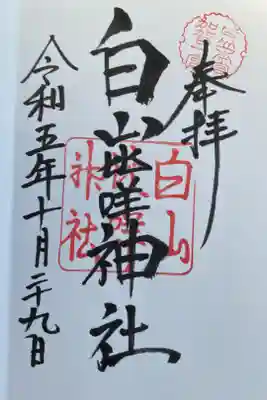 奉拝
白山比咩神社
白山
比咩
神社
令和五年十月二十九日